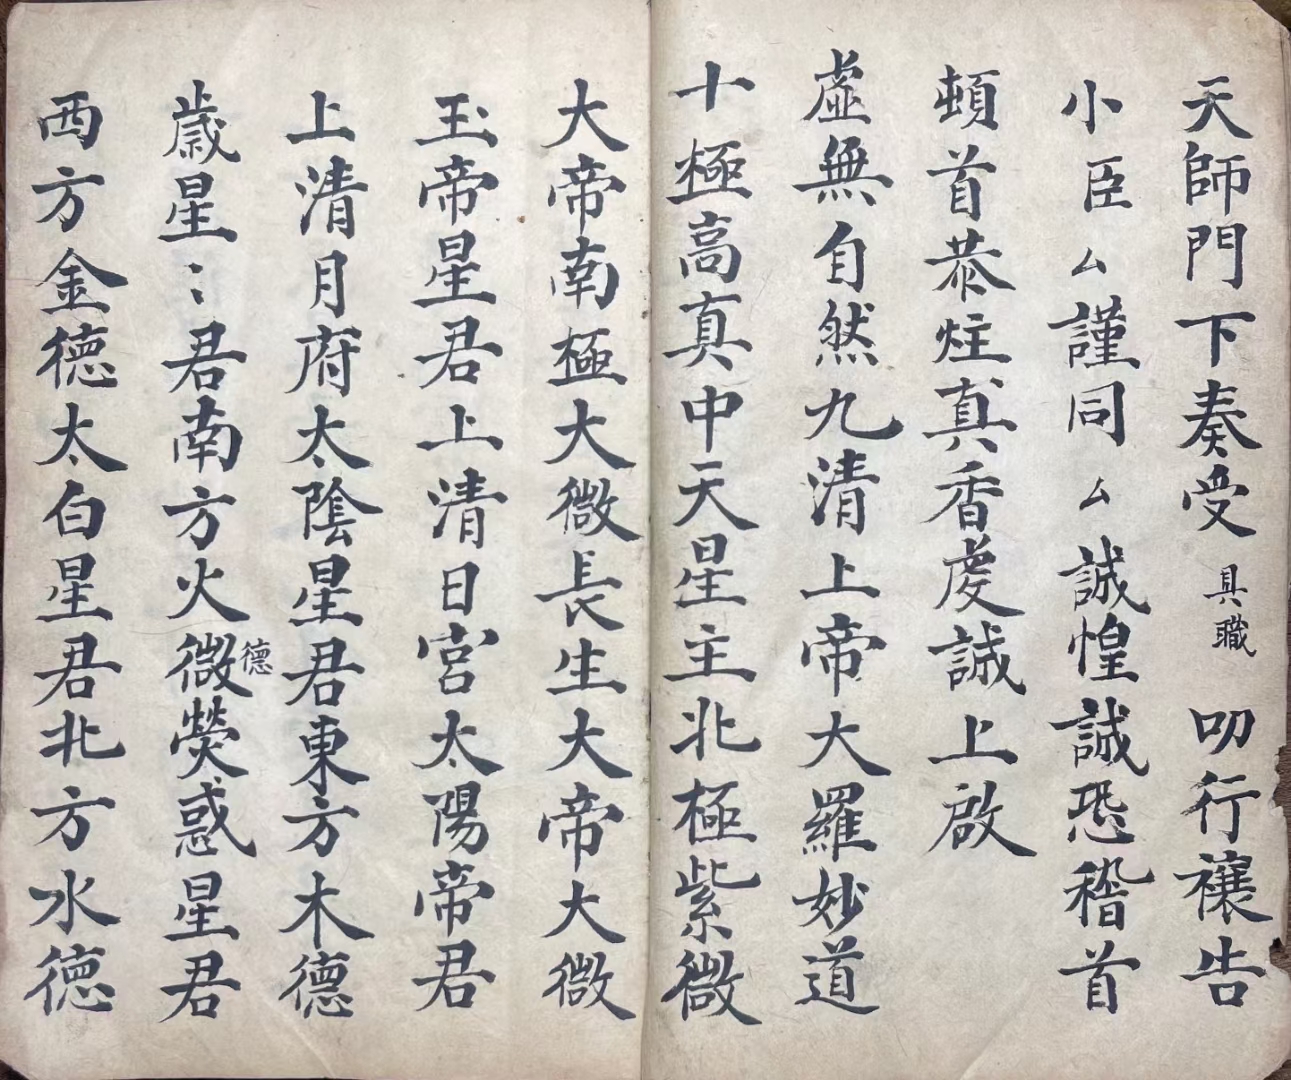 天師門下奏受具職叨行禳告
小臣厶謹同厶誠惶誠恐稽首
頓首恭炷真香虔誠上啟
虛無自然九清上帝大羅妙道
十極高真中天星主北極紫微
大帝南極大微長生大帝大微
玉帝星君上清日宮太陽帝君
上清月府太陰星君東方木德
歲星〻君南方火微德熒惑星君
西方金德太白星君北方水德